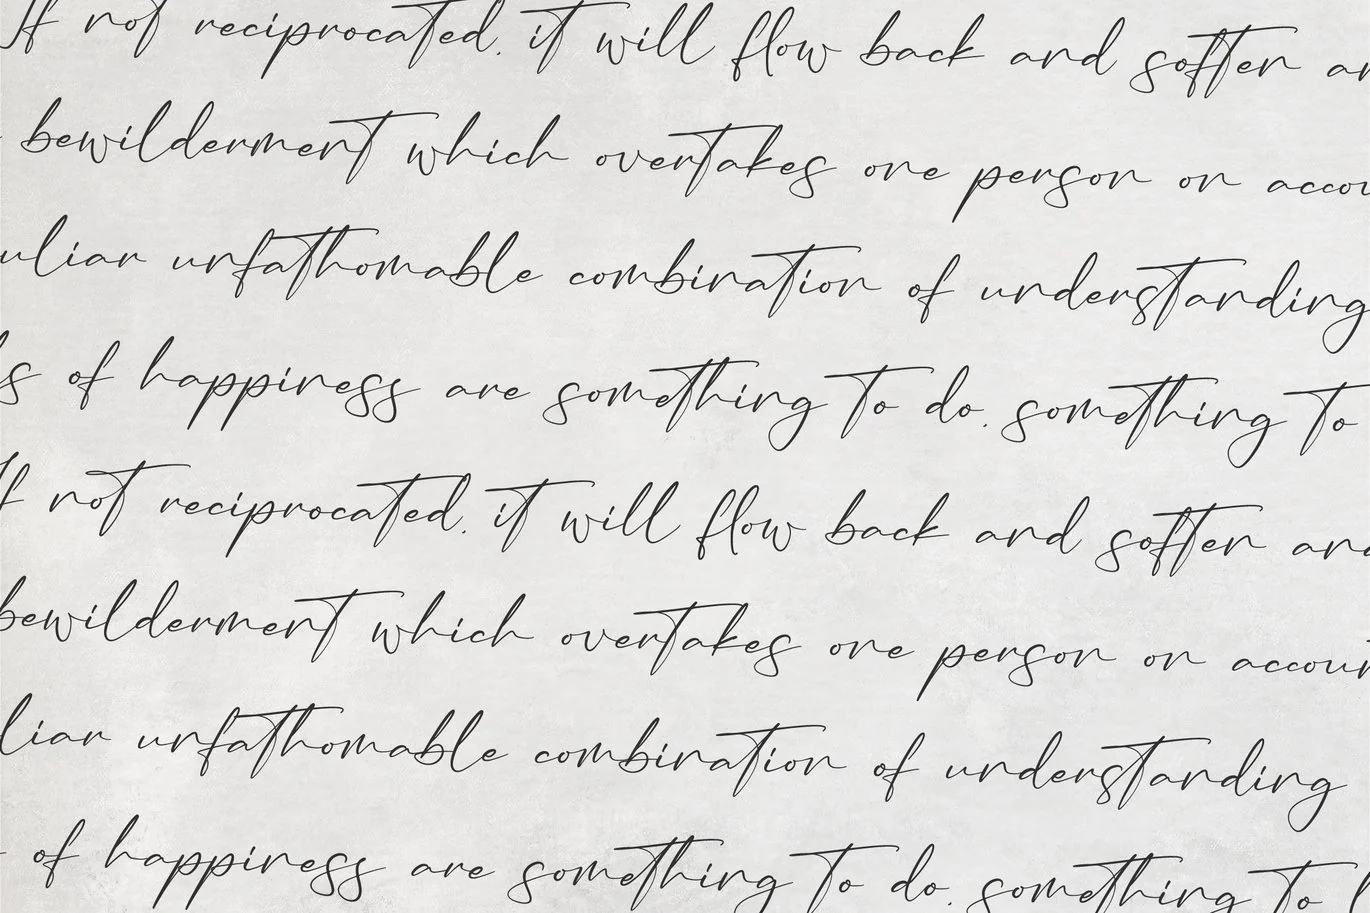 If not reciprocated, it will flow back and soften an
bewilderment which overtakes one person on accou
uliar unfathomable combination of understanding
s of happiness are something to do, something to
If not reciprocated, it will flow back and soften and
bewilderment which overtakes one person on accoun
liar unfathomable combination of understanding
of happiness are something to do, something to l